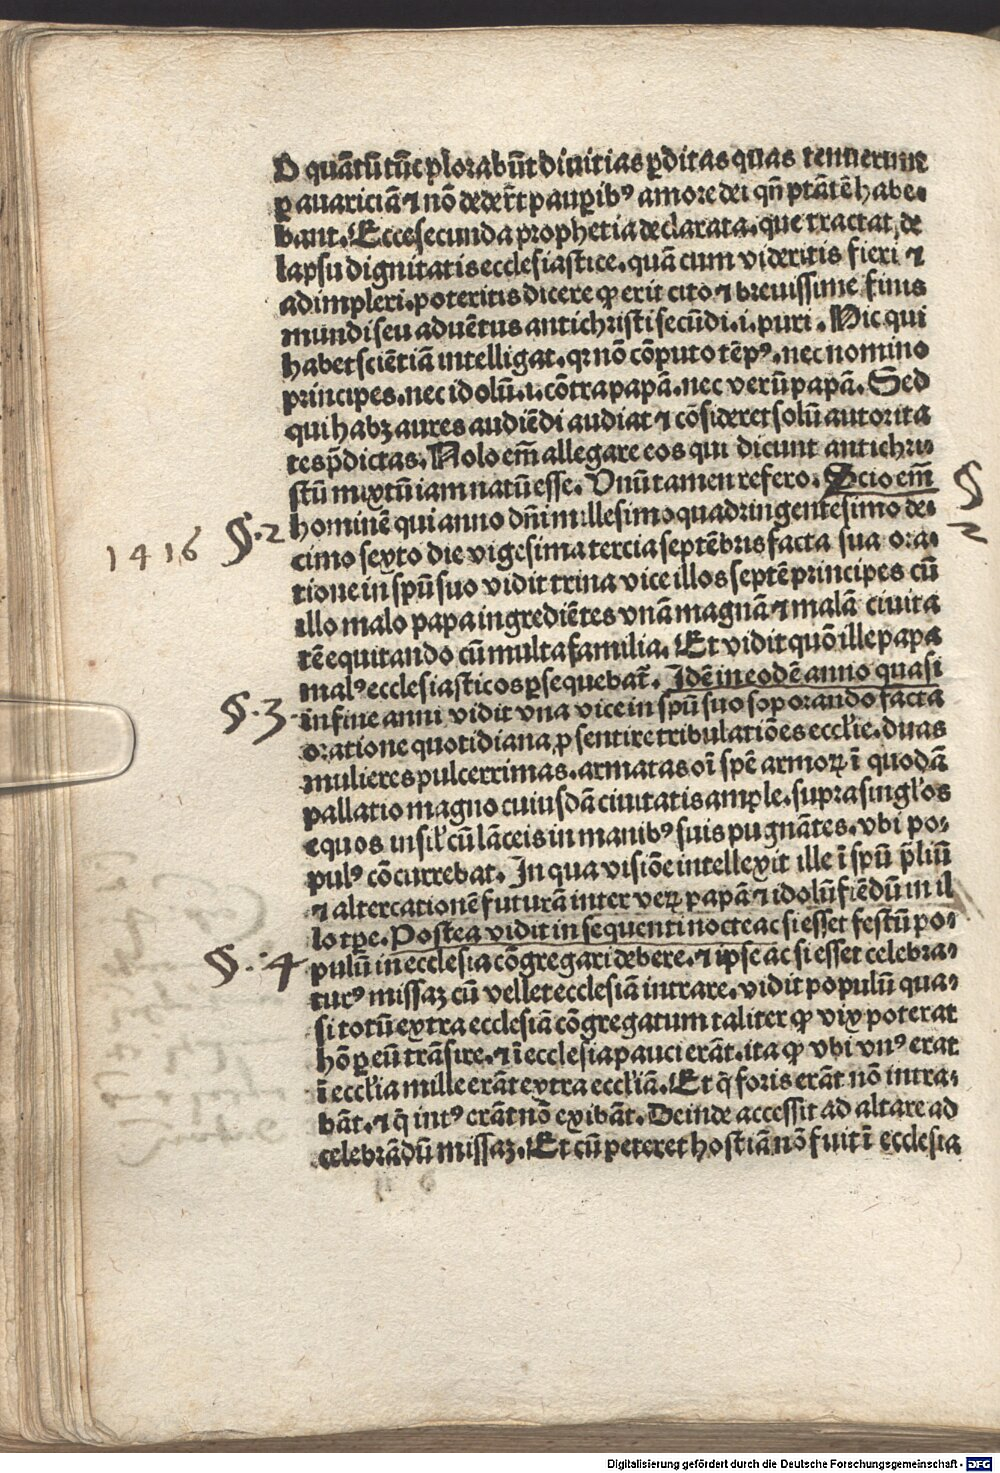 O quãtũ tũc plorabũt diuitias ꝑditas quas tenuerunt
ꝑ auariciã ⁊ nõ dederũt pauꝑibꝰ amore dei qñ ptãtẽ habe-
bant. Ecce secunda prophetia declarata. que tractat de
lapsu dignitatis ecclesiastice. quã cum videritis fieri ⁊
adimpleri. poteritis dicere ꝙ erit cito ⁊ breuissime finis
mundi seu aduẽtus antichristi secũdi .i. puri. Hic qui
habet sciẽtiã intelligat. qꝛ nõ cõputo tẽpꝰ. nec nomino
principes. nec idolũ .i. cõtra papã. nec verũ papã. Sed
qui habꝫ aures audiẽdi audiat ⁊ cõsideret solũ autorita
tes p̃dictas. Nolo em̃ allegare eos qui dicunt antichri-
stũ mixtũ iam natũ esse. Vnũ tamen refero. Scio em̃
§
§. 2 hominẽ qui anno dñi millesimo quadringentesimo de-
2
1416
cimo sexto die vigesima tercia septẽbris facta sua ora-
tione in spũ suo vidit trina vice illos septẽ principes cũ
illo malo papa ingrediẽtes vnã magnã ⁊ malã ciuita
tẽ equitando cũ multa familia. Et vidit quõ ille papa
malꝰ ecclesiasticos ꝑsequebat̃. Idẽ in eodẽ anno quasi
§. 3 in fine anni vidit vna vice in spũ suo soporando facta
oratione quotidiana ꝓ sentire tribulatiões eccłie. duas
mulieres pulcerrimas. armatas oĩ spẽ armoꝝ ĩ quodã
pallatio magno cuiusdã ciuitatis ample. supra singłos
equos insił cũ lãceis in manibꝰ suis pugnãtes. vbi po-
pulꝰ cõcurrebat. In qua visiõe intellexit ille ĩ spũ p̃liũ
⁊ altercationẽ futurã inter veꝝ papã ⁊ idolũ fiẽdũ in il
lo tꝑe. Postea vidit in sequenti nocte ac si esset festũ po-
§. 4 pulũ in ecclesia cõgregari debere. ⁊ ipse ac si esset celebra-
turꝰ missaꝫ cũ vellet ecclesiã intrare. vidit populũ qua-
si totũ extra ecclesiã cõgregatum taliter ꝙ vix poterat
hõ ꝑ eũ trãsire. ⁊ ĩ ecclesia pauci erãt. ita ꝙ vbi vnꝰ erat
ĩ eccłia mille erãt extra eccłiã. Et q̃ foris erãt nõ intra-
bãt. ⁊ q̃ intꝰ erãt nõ exibãt. Deinde accessit ad altare ad
celebrãdũ missaꝫ. Et cũ peteret hostiã nõ fuit ĩ ecclesia
Digitalisierung gefördert durch die Deutsche Forschungsgemeinschaft - DFG